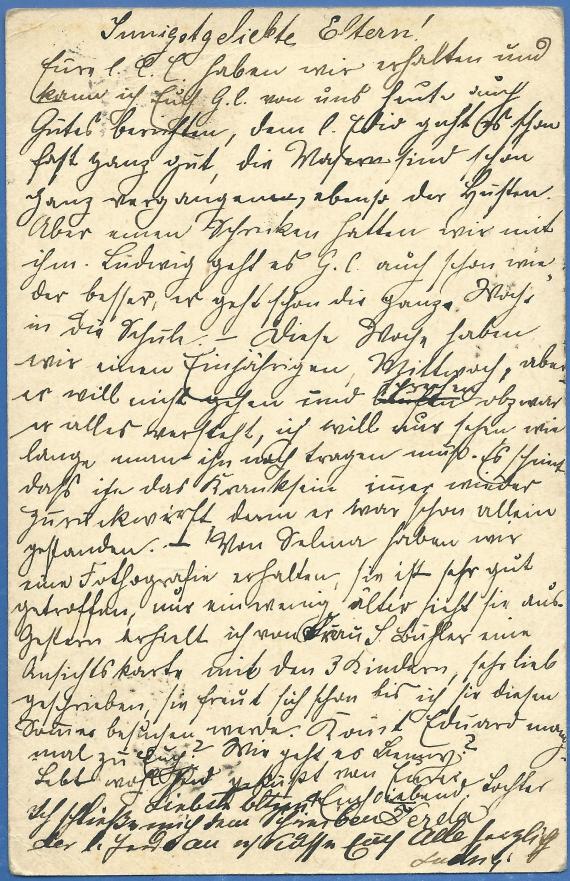 Innigstgeliebte Eltern!
Eure l. C. C. haben wir erhalten und
kann ich Euch G. l. von uns heute auch
Gutes berichten, dem l. Edid geht es schon
fast ganz gut, die Masern sind schon
ganz vergangen, ebenso der Husten.
Aber einen Schrecken hatten wir mit
ihm. Ludwig geht es G. l. auch schon wie-
der besser, er geht schon die ganze Woche
in die Schule. – Diese Woche haben
wir einen Einjährigen, Mittwoch, aber
er will nicht gehen und sprechen obzwar
er alles versteht, ich will nur sehen wie
lange man ihn noch tragen muß. Es scheint
dass ihn das Kranksein immer wieder
zurückwirft denn er war schon allein
gestanden. – Von Selma haben wir
eine Fothografie erhalten, sie ist sehr gut
getroffen, nur ein wenig älter sieht sie aus.
Gestern erhielt ich von Frau S. Bühler eine
Ansichtskarte mit den 3 Kindern, sehr lieb
geschrieben, sie freut sich schon bis ich sie diesen
Sommer besuchen werde. Kommt Eduard manch-
mal zu Euch? Wie geht es
Lebt wohl und geküßt von Eurer
Euch liebend. Tochter
Liebste Eltern!
Ich schließe mich dem Schreiben
der l. an u küsse Euch Alle herzlich
Ludwig.